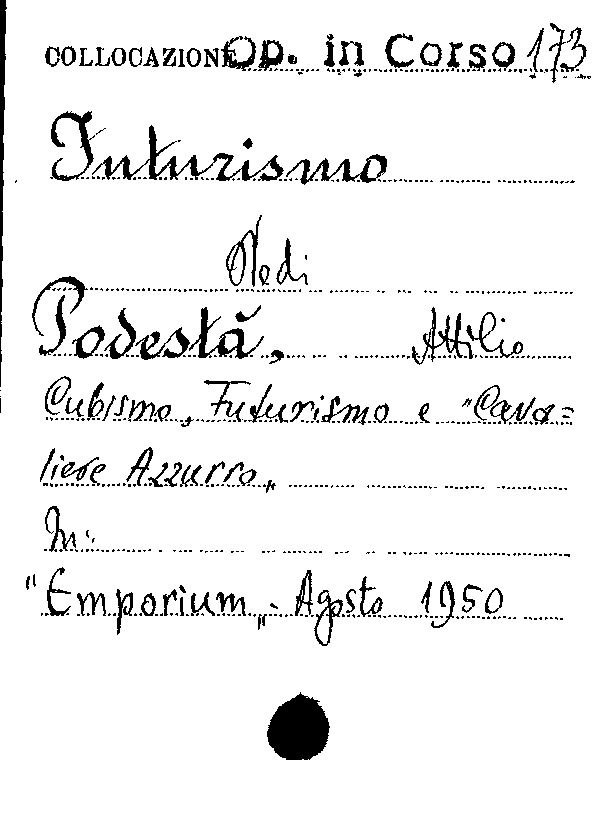 COLLOCAZIONE Op. in Corso 173
Futurismo
Vedi
Podestà, Attilio
Cubismo, Futurismo e "Cava=
liere Azzurro„
In:
"Emporium„ - Agosto 1950